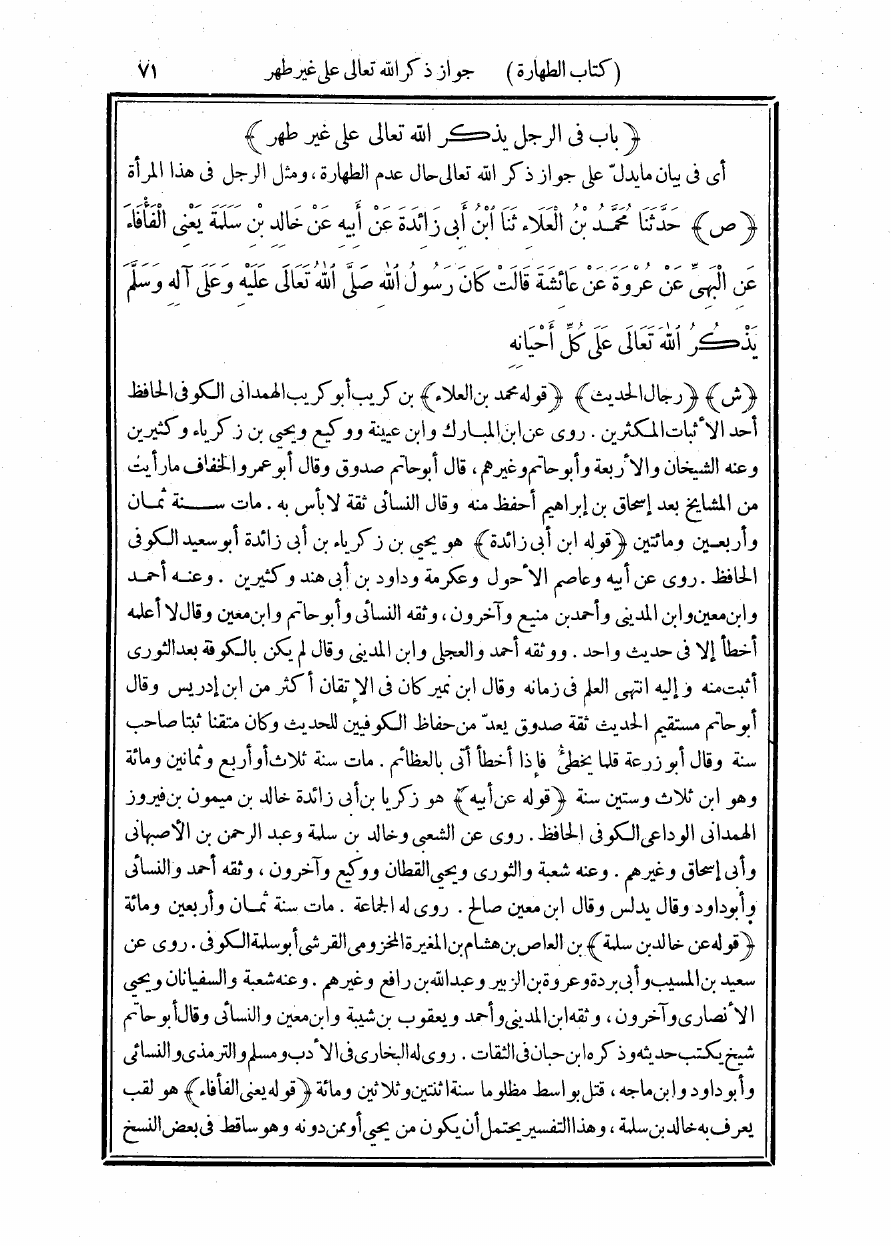 (كتاب الطهارة) جواز ذكر الله تعالى على غير طهر ٧١
﴿ باب فى الرجل يذكر الله تعالى على غير طهر ﴾
أى فى بيان مايدلّ على جواز ذكر الله تعالى حال عدم الطهارة ، ومثل الرجل فى هذا المرأة
﴿ ص ﴾ حَدَّثَنَا مُحَمَّدُ بْنُ الْعَلَاءِ ثَنَا ابْنُ أَبِى زَائِدَةَ عَنْ أَبِيهِ عَنْ خَالِدِ بْنِ سَلَمَةَ يَعْنِى الْفَأْفَاءَ
عَنِ الْبَهِىِّ عَنْ عُرْوَةَ عَنْ عَائِشَةَ قَالَتْ كَانَ رَسُولُ اللهِ صَلَّى اللهُ تَعَالَى عَلَيْهِ وَعَلَى آلِهِ وَسَلَّمَ
يَذْكُرُ اللهَ تَعَالَى عَلَى كُلِّ أَحْيَانِهِ
﴿ش﴾ ﴿رجال الحديث﴾ ﴿قوله محمد بن العلاء﴾ بن كريب أبو كريب الهمدانى الكوفى الحافظ
أحد الأثبات المكثرين . روى عن ابن المبارك وابن عيينة ووكيع ويحيى بن زكرياء وكثيرين
وعنه الشيخان والأربعة وأبو حاتم وغيرهم ، قال أبو حاتم صدوق وقال أبو عمرو الخفاف مارأيت
من المشايخ بعد إسحاق بن إبراهيم أحفظ منه وقال النسائى ثقة لابأس به . مات سنة ثمان
وأربعين ومائتين ﴿قوله ابن أبى زائدة﴾ هو يحيى بن زكرياء بن أبى زائدة أبو سعيد الكوفى
الحافظ . روى عن أبيه وعاصم الأحول وعكرمة وداود بن أبى هند وكثيرين . وعنه أحمد
وابن معين وابن المدينى وأحمد بن منيع وآخرون ، وثقه النسائى وأبو حاتم وابن معين وقال لا أعلمه
أخطأ إلا فى حديث واحد . ووثقه أحمد والعجلى وابن المدينى وقال لم يكن بالكوفة بعد الثورى
أثبت منه وإليه انتهى العلم فى زمانه وقال ابن نمير كان فى الإتقان أكثر من ابن إدريس وقال
أبو حاتم مستقيم الحديث ثقة صدوق يعدّ من حفاظ الكوفيين للحديث وكان متقنا ثبتا صاحب
سنة وقال أبو زرعة قلما يخطئ فإذا أخطأ أتى بالعظائم . مات سنة ثلاث أو أربع وثمانين ومائة
وهو ابن ثلاث وستين سنة ﴿قوله عن أبيه﴾ هو زكريا بن أبى زائدة خالد بن ميمون بن فيروز
الهمدانى الوداعى الكوفى الحافظ . روى عن الشعبى وخالد بن سلمة وعبد الرحمن بن الأصبهانى
وأبى إسحاق وغيرهم . وعنه شعبة والثورى ويحيى القطان ووكيع وآخرون ، وثقه أحمد والنسائى
وأبو داود وقال يدلس وقال ابن معين صالح . روى له الجماعة . مات سنة ثمان وأربعين ومائة
﴿قوله عن خالد بن سلمة﴾ بن العاص بن هشام بن المغيرة المخزومى القرشى أبو سلمة الكوفى . روى عن
سعيد بن المسيب وأبى بردة وعروة بن الزبير وعبد الله بن رافع وغيرهم . وعنه شعبة والسفيانان ويحيى
الأنصارى وآخرون ، وثقه ابن المدينى وأحمد ويعقوب بن شيبة وابن معين والنسائى وقال أبو حاتم
شيخ يكتب حديثه وذكره ابن حبان فى الثقات . روى له البخارى فى الأدب ومسلم والترمذى والنسائى
وأبو داود وابن ماجه ، قتل بواسط مظلوما سنة اثنتين وثلاثين ومائة ﴿قوله يعنى الفأفاء﴾ هو لقب
يعرف به خالد بن سلمة ، وهذا التفسير يحتمل أن يكون من يحيى أو ممن دونه وهو ساقط فى بعض النسخ